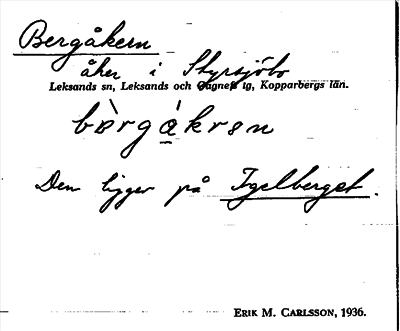 Bergåkern
åker i Styrsjöbo
Leksands sn, Leksands och Gagnefs tg, Kopparbergs län.
bærgàkrən
Den ligger på Igelberget.
ERIK M. CARLSSON, 1936.